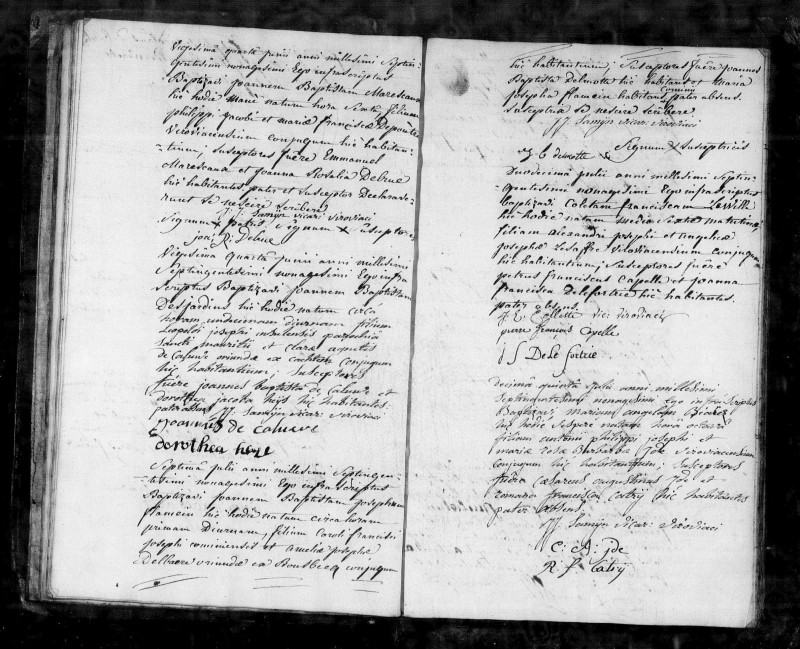 Vigesimâ quartâ junii anni millesimi Septin-
gentesimi nonagesimi Ego infrascriptus
Baptizavi Joannem Baptistam Marescaux
hîc hodiè manè natum horâ sextâ filium
philippi jacobi et mariæ franciscæ Deponte
Viroviacensium conjugum hîc habitan-
tium; susceptores fuêre Emmanuel
Marescaux et Joanna Rosalia Debrue
hîc habitantes, pater et susceptor Declarave-
runt se nescire scribere
J. J. Samijn vicari viroviaci
Signum x patris Signum x susceptoris
joa: R: Debrue
Vigesimâ quartâ junii anni millesimi
Septingentesimi nonagesimi Ego infra
scriptus Baptizavi joannem Baptistam
Desjardins hîc hodiè natum circa
horam undecimam diurnam filium
Leopoldi josephi insulensis parochiâ
Sancti mauritii et claræ agnetis
de caluwe oriundæ ex conjugum
hîc habitantium; susceptores
fuêre joannes baptista de caluwe et
dorothea jacoba heyse hîc habitantes
pater absens J. J. Samijn vicar: viroviaci
joannes de caluwe
dorothea heyse
Septimâ julii anni millesimi Septingen-
tesimi nonagesimi Ego infrascriptus
Baptizavi joannem Baptistam josephum
flamein hîc hodiè natum circa horam
primam Diurnam, filium caroli francisci
josephi cominiensis et ameliæ josephæ
Delbaere oriundæ ex Bousbecq conjugum
hîc habitantium; Susceptores fuêre joannes
Baptista Delmotte hîc habitans et Maria
josepha flamein habitans Cominii pater absens.
susceptrix se nescire scribere
J. J. Samijn vicar: viroviaci
j b demotte x Signum x susceptricis
Duodecimâ julii anni millesimi Septin-
gentesimi nonagesimi Ego infrascriptus
baptizavi Coletam franciscam
hîc hodiè natam mediâ sextâ matutinâ
filiam alexandri josephi et angelicæ
josephæ Lesaffre viroviacensium conjugum
hîc habitantium; susceptores fuêre
petrus franciscus Capelle et joanna
francisca Delefortrie hîc habitantes.
pater absens
J. E. Collette vici: viroviaci
pierre françois Capelle
j f De le fortrie
decimâ quintâ julii anni millesimi
septingentesimi nonagesimi Ego infrascriptus
Baptizavi mariam angelam
hîc hodiè vesperè natam horâ octavâ
filiam antonii philippi josephi et
mariæ rosæ Barbaræ jde viroviacensium
conjugum hîc habitantium; susceptores
fuêre cæsareus augustinus jde et
romana francisca Catry hîc habitantes
pater absens.
J. J. Samijn vicar: viroviaci
C: A: jde
R f Catry